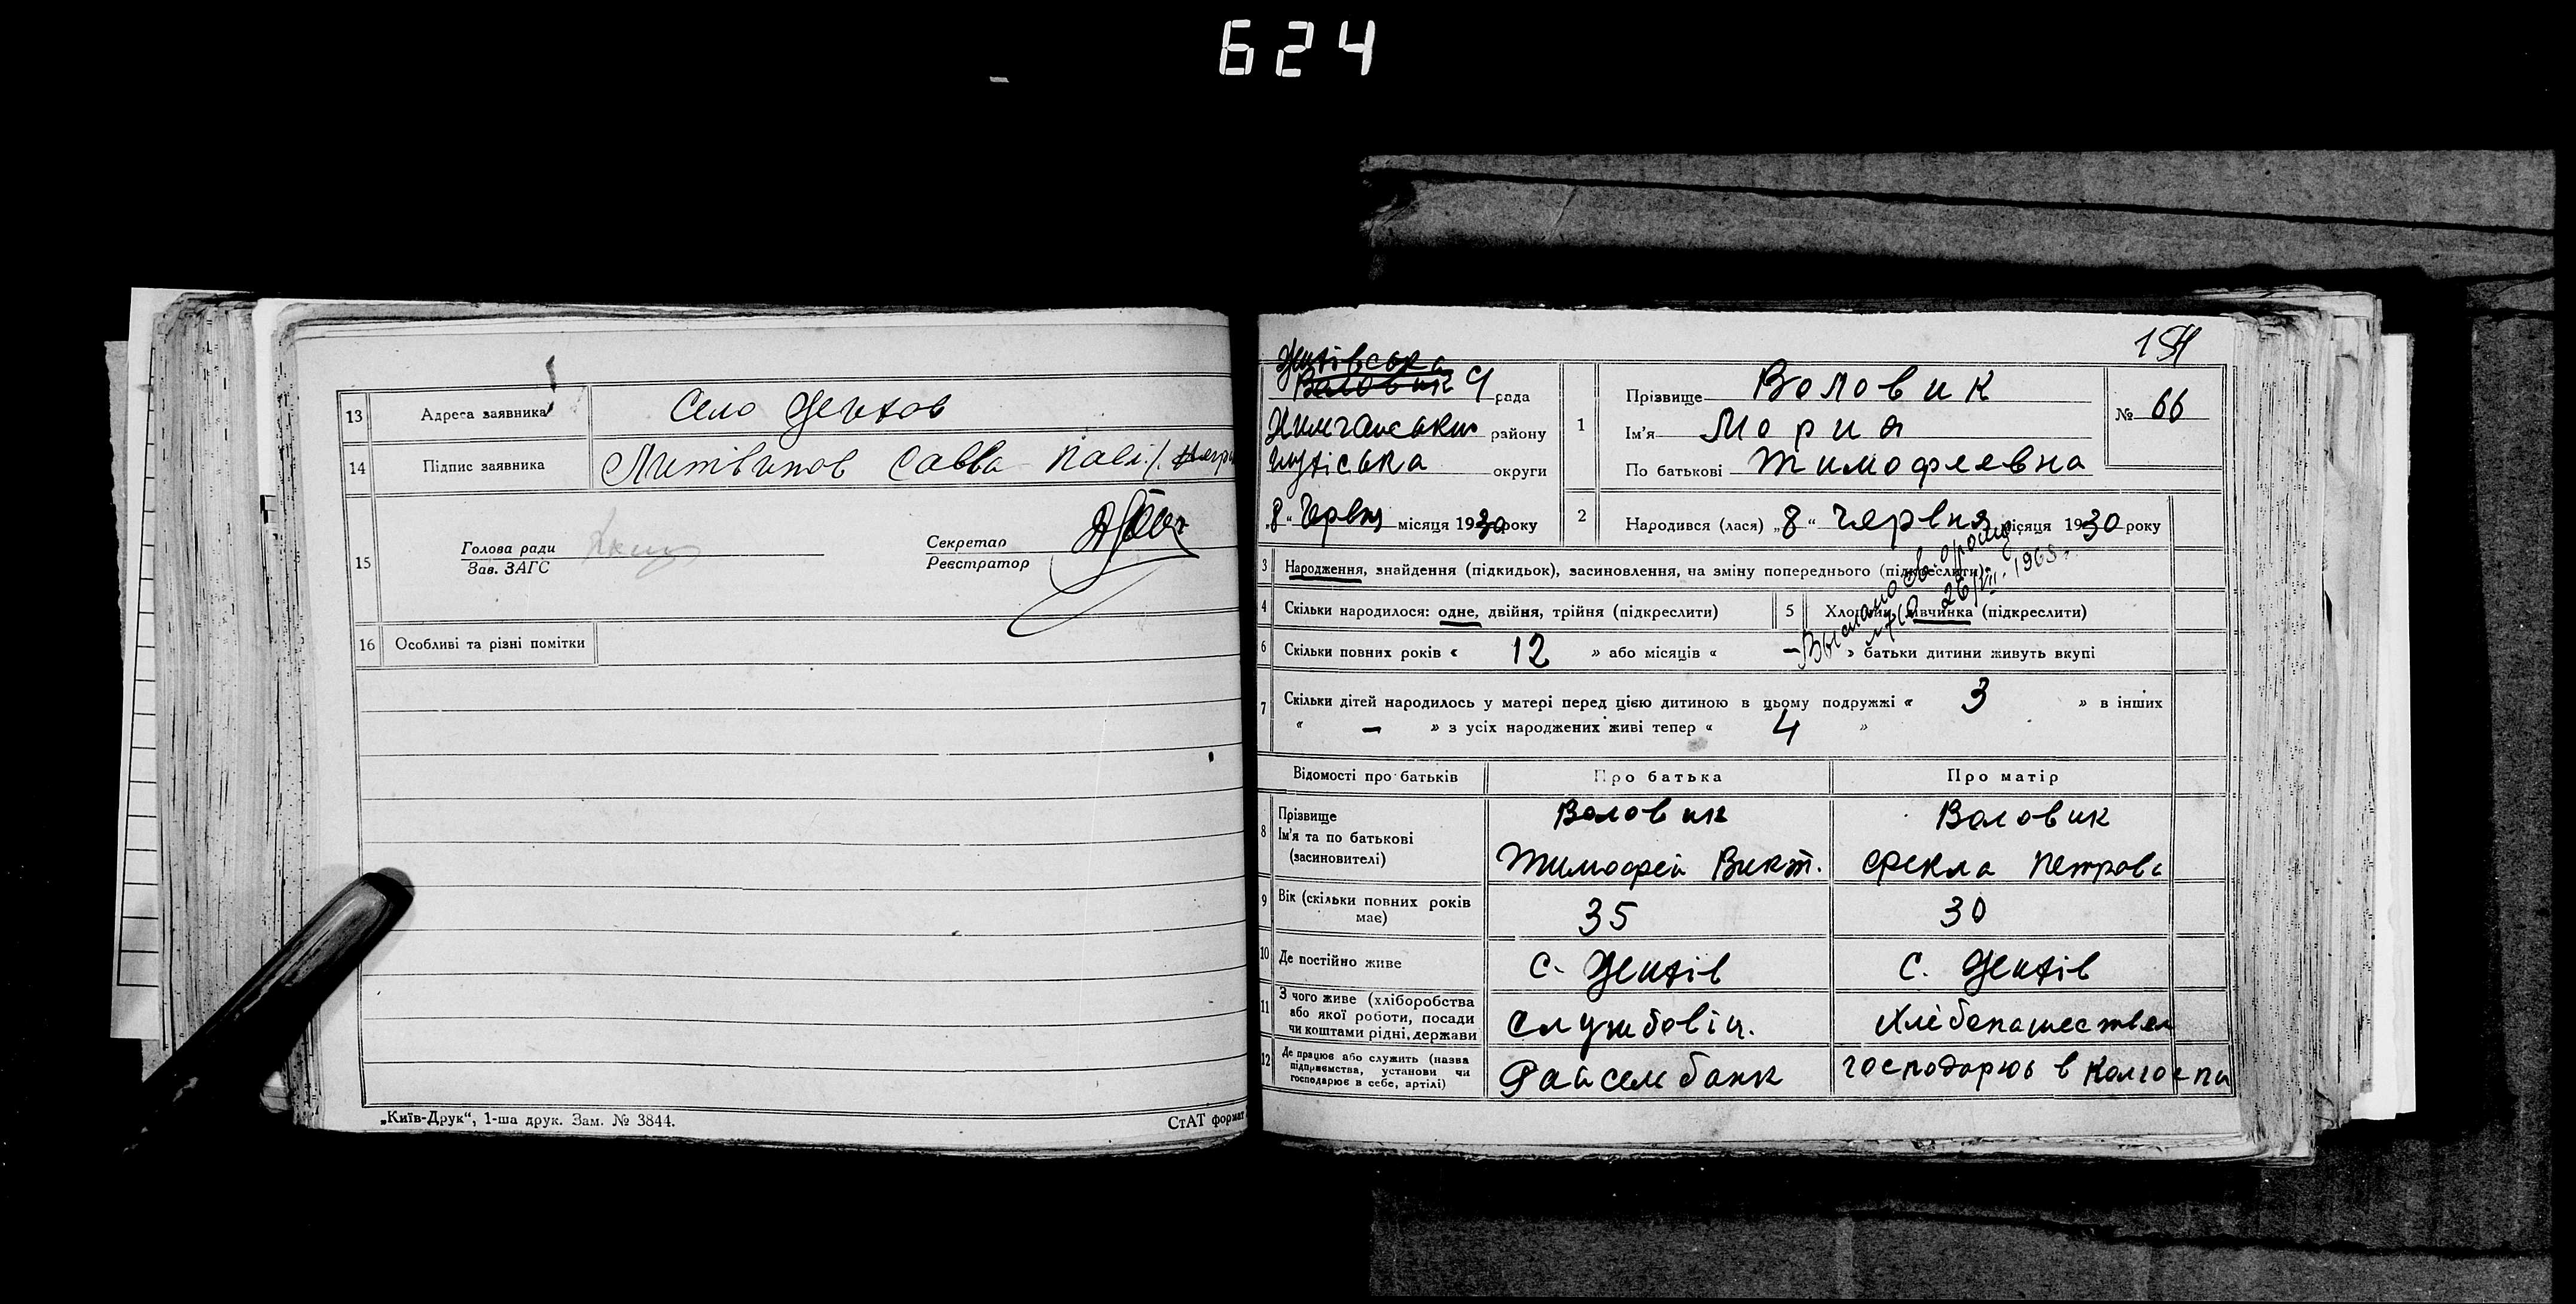 624
13 Адреса заявника Село Дептов
14 Підпис заявника Литвинов Савва Павл.
15 Голова ради
Зав. ЗАГС
Секретар
Реєстратор
16 Особливі та різні помітки
„Київ-Друк“, 1-ша друк. Зам. № 3844.
СтАТ формат
154
Воловик рада
району
округи
„8“ Червня місяця 1930 року
1 Прізвище Воловик
Ім’я Мория
По батькові Тимофеевна
№ 66
2 Народився (лася) „8“ червня місяця 1930 року
3 Народження, знайдення (підкидьок), засиновлення, на зміну попереднього (підкреслити):
4 Скільки народилося: одне, двійня, трійня (підкреслити)
5 Хлопчик, дівчинка (підкреслити)
Выслано св. о рожд.
26/VII. 1963 г.
6 Скільки повних років « 12 » або місяців « – » батьки дитини живуть вкупі
7 Скільки дітей народилось у матері перед цією дитиною в цьому подружжі « 3 » в інших
« – » з усіх народжених живі тепер « 4 »
Відомості про батьків Про батька Про матір
8 Прізвище Воловик Воловик
Ім’я та по батькові
(засиновителі) Тимофей Викт. Фекла Петрова
9 Вік (скільки повних років має) 35 30
10 Де постійно живе с. Дептів с. Дептів
11 З чого живе (хліборобства
або якої роботи, посади
чи коштами рідні, держави службовіц.
12 Де працює або служить (назва
підприємства, установи чи
господарює в себе, артілі) Райселбанк господарює в колгоспи